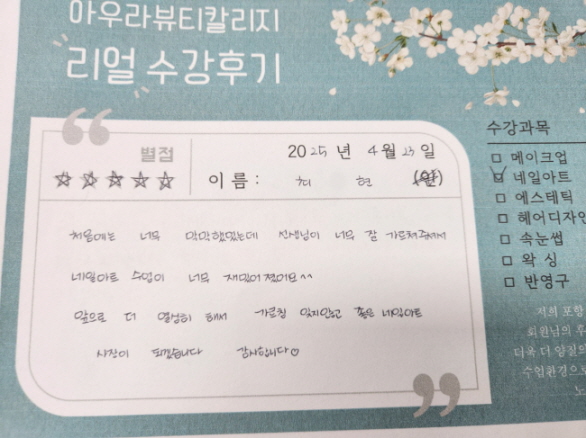 아우라뷰티칼리지
리얼 수강후기
별점
2025년 4월 23일
이름 : 최 현
처음에는 너무 막막했었는데 선생님이 너무 잘 가르쳐주셔서
네일아트 수업이 너무 재밌어졌어요^^
앞으로 더 열심히 해서 가르침 잊지않고 좋은 네일아트
사장이 되겠습니다 감사합니다♡
수강과목
메이크업
네일아트
에스테틱
헤어디자인
속눈썹
왁싱
반영구
저희 포함
회원님의 후
더욱 더 양질의
수업환경으로